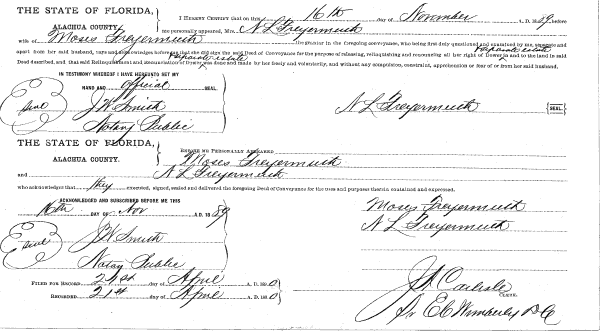 THE STATE OF FLORIDA,
ALACHUA COUNTY.
I HEREBY CERTIFY that on this 16th day of November A. D. 1889, before
me personally appeared, Mrs. N L Freyermuth
wife of Moses Freyermuth the grantor in the foregoing conveyance, who being first duly questioned and examined by me, separate and
apart from her said husband, says and acknowledges before me that she did sign the said Deed of Conveyance for the purpose of releasing, relinquishing and renouncing all her right of dower & separate estate in and to the land in said
Deed described, and that said Relinquishment and Renunciation of dower & separate estate was done and made by her freely and voluntarily, and without any compulsion, constraint, apprehension or fear of or from her said husband.
IN TESTIMONY WHEREOF I HAVE HEREUNTO SET MY
HAND AND official SEAL.
Seal
J W Smith
Notary Public
N L Freyermuth
SEAL.
THE STATE OF FLORIDA,
ALACHUA COUNTY.
BEFORE ME PERSONALLY APPEARED
Moses Freyermuth
and N L Freyermuth
who acknowledged that they executed, signed, sealed and delivered the foregoing Deed of Conveyance for the uses and purposes therein contained and expressed.
ACKNOWLEDGED AND SUBSCRIBED BEFORE ME THIS
16th DAY OF Nov A. D. 1889
Seal
J W Smith
Notary Public
Moses Freyermuth
N L Freyermuth
FILED FOR RECORD 21st day of April A. D. 1890
RECORDED 21st day of April A. D. 1890
J A Carlisle
CLERK.
Pr E C Wimberly D C